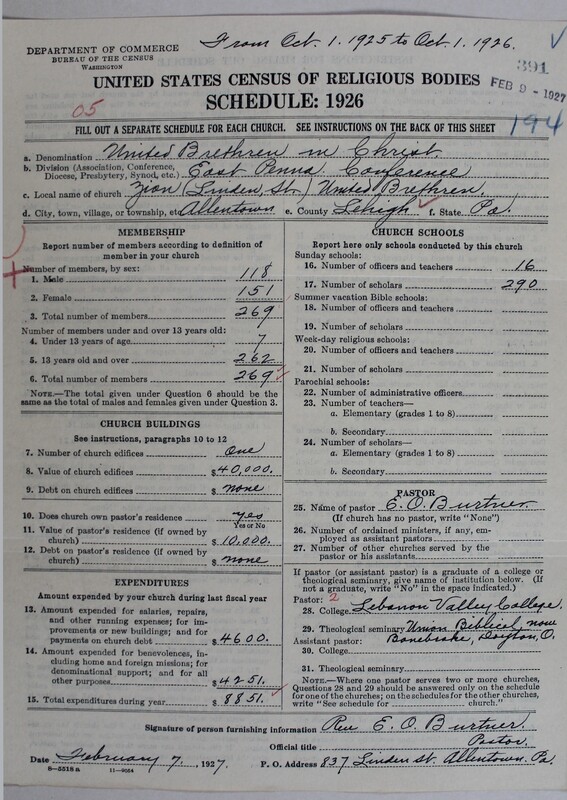 From Oct. 1. 1925 to Oct. 1. 1926.
DEPARTMENT OF COMMERCE
BUREAU OF THE CENSUS
WASHINGTON
391
FEB 9 - 1927
UNITED STATES CENSUS OF RELIGIOUS BODIES
SCHEDULE: 1926
05
194
FILL OUT A SEPARATE SCHEDULE FOR EACH CHURCH. SEE INSTRUCTIONS ON THE BACK OF THIS SHEET
a. Denomination United Brethren in Christ.
b. Division (Association, Conference, Diocese, Presbytery, Synod, etc.) East Penna Conference
c. Local name of church Zion (Linden St.) United Brethren
d. City, town, village, or township, etc. Allentown e. County Lehigh f. State Pa.
MEMBERSHIP
Report number of members according to definition of
member in your church
Number of members, by sex:
1. Male 118
2. Female 151
3. Total number of members 269
Number of members under and over 13 years old:
4. Under 13 years of age 7
5. 13 years old and over 262
6. Total number of members 269
NOTE.—The total given under Question 6 should be
same as the total of males and females given under Question 3.
CHURCH BUILDINGS
See instructions, paragraphs 10 to 12
7. Number of church edifices One
8. Value of church edifices $40,000.
9. Debt on church edifices $ none
10. Does church own pastor's residence yes
Yes or No
11. Value of pastor's residence (if owned by
church) $10,000.
12. Debt on pastor's residence (if owned by
church) $ none
EXPENDITURES
Amount expended by your church during last fiscal year
13. Amount expended for salaries, repairs,
and other running expenses; for im-
provements or new buildings; and for
payments on church debt $4600.
14. Amount expended for benevolences, in-
cluding home and foreign missions; for
denominational support; and for all
other purposes $4251.
15. Total expenditures during year $8851.
CHURCH SCHOOLS
Report here only schools conducted by this church
Sunday schools:
16. Number of officers and teachers 16
17. Number of scholars 290
Summer vacation Bible schools:
18. Number of officers and teachers
19. Number of scholars
Week-day religious schools:
20. Number of officers and teachers
21. Number of scholars
Parochial schools:
22. Number of administrative officers
23. Number of teachers—
a. Elementary (grades 1 to 8)
b. Secondary
24. Number of scholars—
a. Elementary (grades 1 to 8)
b. Secondary
PASTOR
25. Name of pastor E. O. Burtner.
(If church has no pastor, write "None")
26. Number of ordained ministers, if any, em-
ployed as assistant pastors
27. Number of other churches served by the
pastor or his assistants
If pastor (or assistant pastor) is a graduate of a college or
theological seminary, give name of institution below. (If
not a graduate, write "No" in the space indicated.)
Pastor: 2
28. College Lebanon Valley College.
29. Theological seminary Union Biblical, now
Assistant pastor: Bonebrake, Dayton, O.
30. College
31. Theological seminary
NOTE.—Where one pastor serves two or more churches,
Questions 28 and 29 should be answered only on the schedule
for one of the churches; on the schedules for the other churches,
write "See schedule for church."
Signature of person furnishing information Rev E. O. Burtner.
Official title Pastor.
Date February 7, 1927 P. O. Address 837 Linden St. Allentown. Pa.
8—5518 a 11—9064